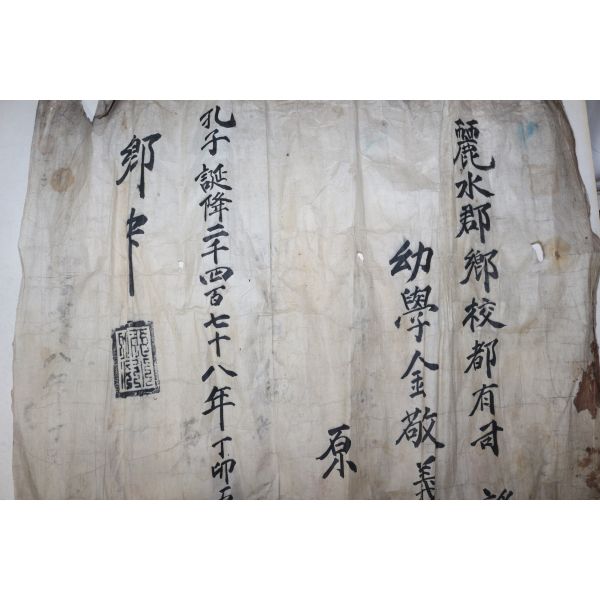 麗水郡鄕校都有司
幼學金敬義
原
孔子誕降二千四百七十八年丁卯五
鄕中